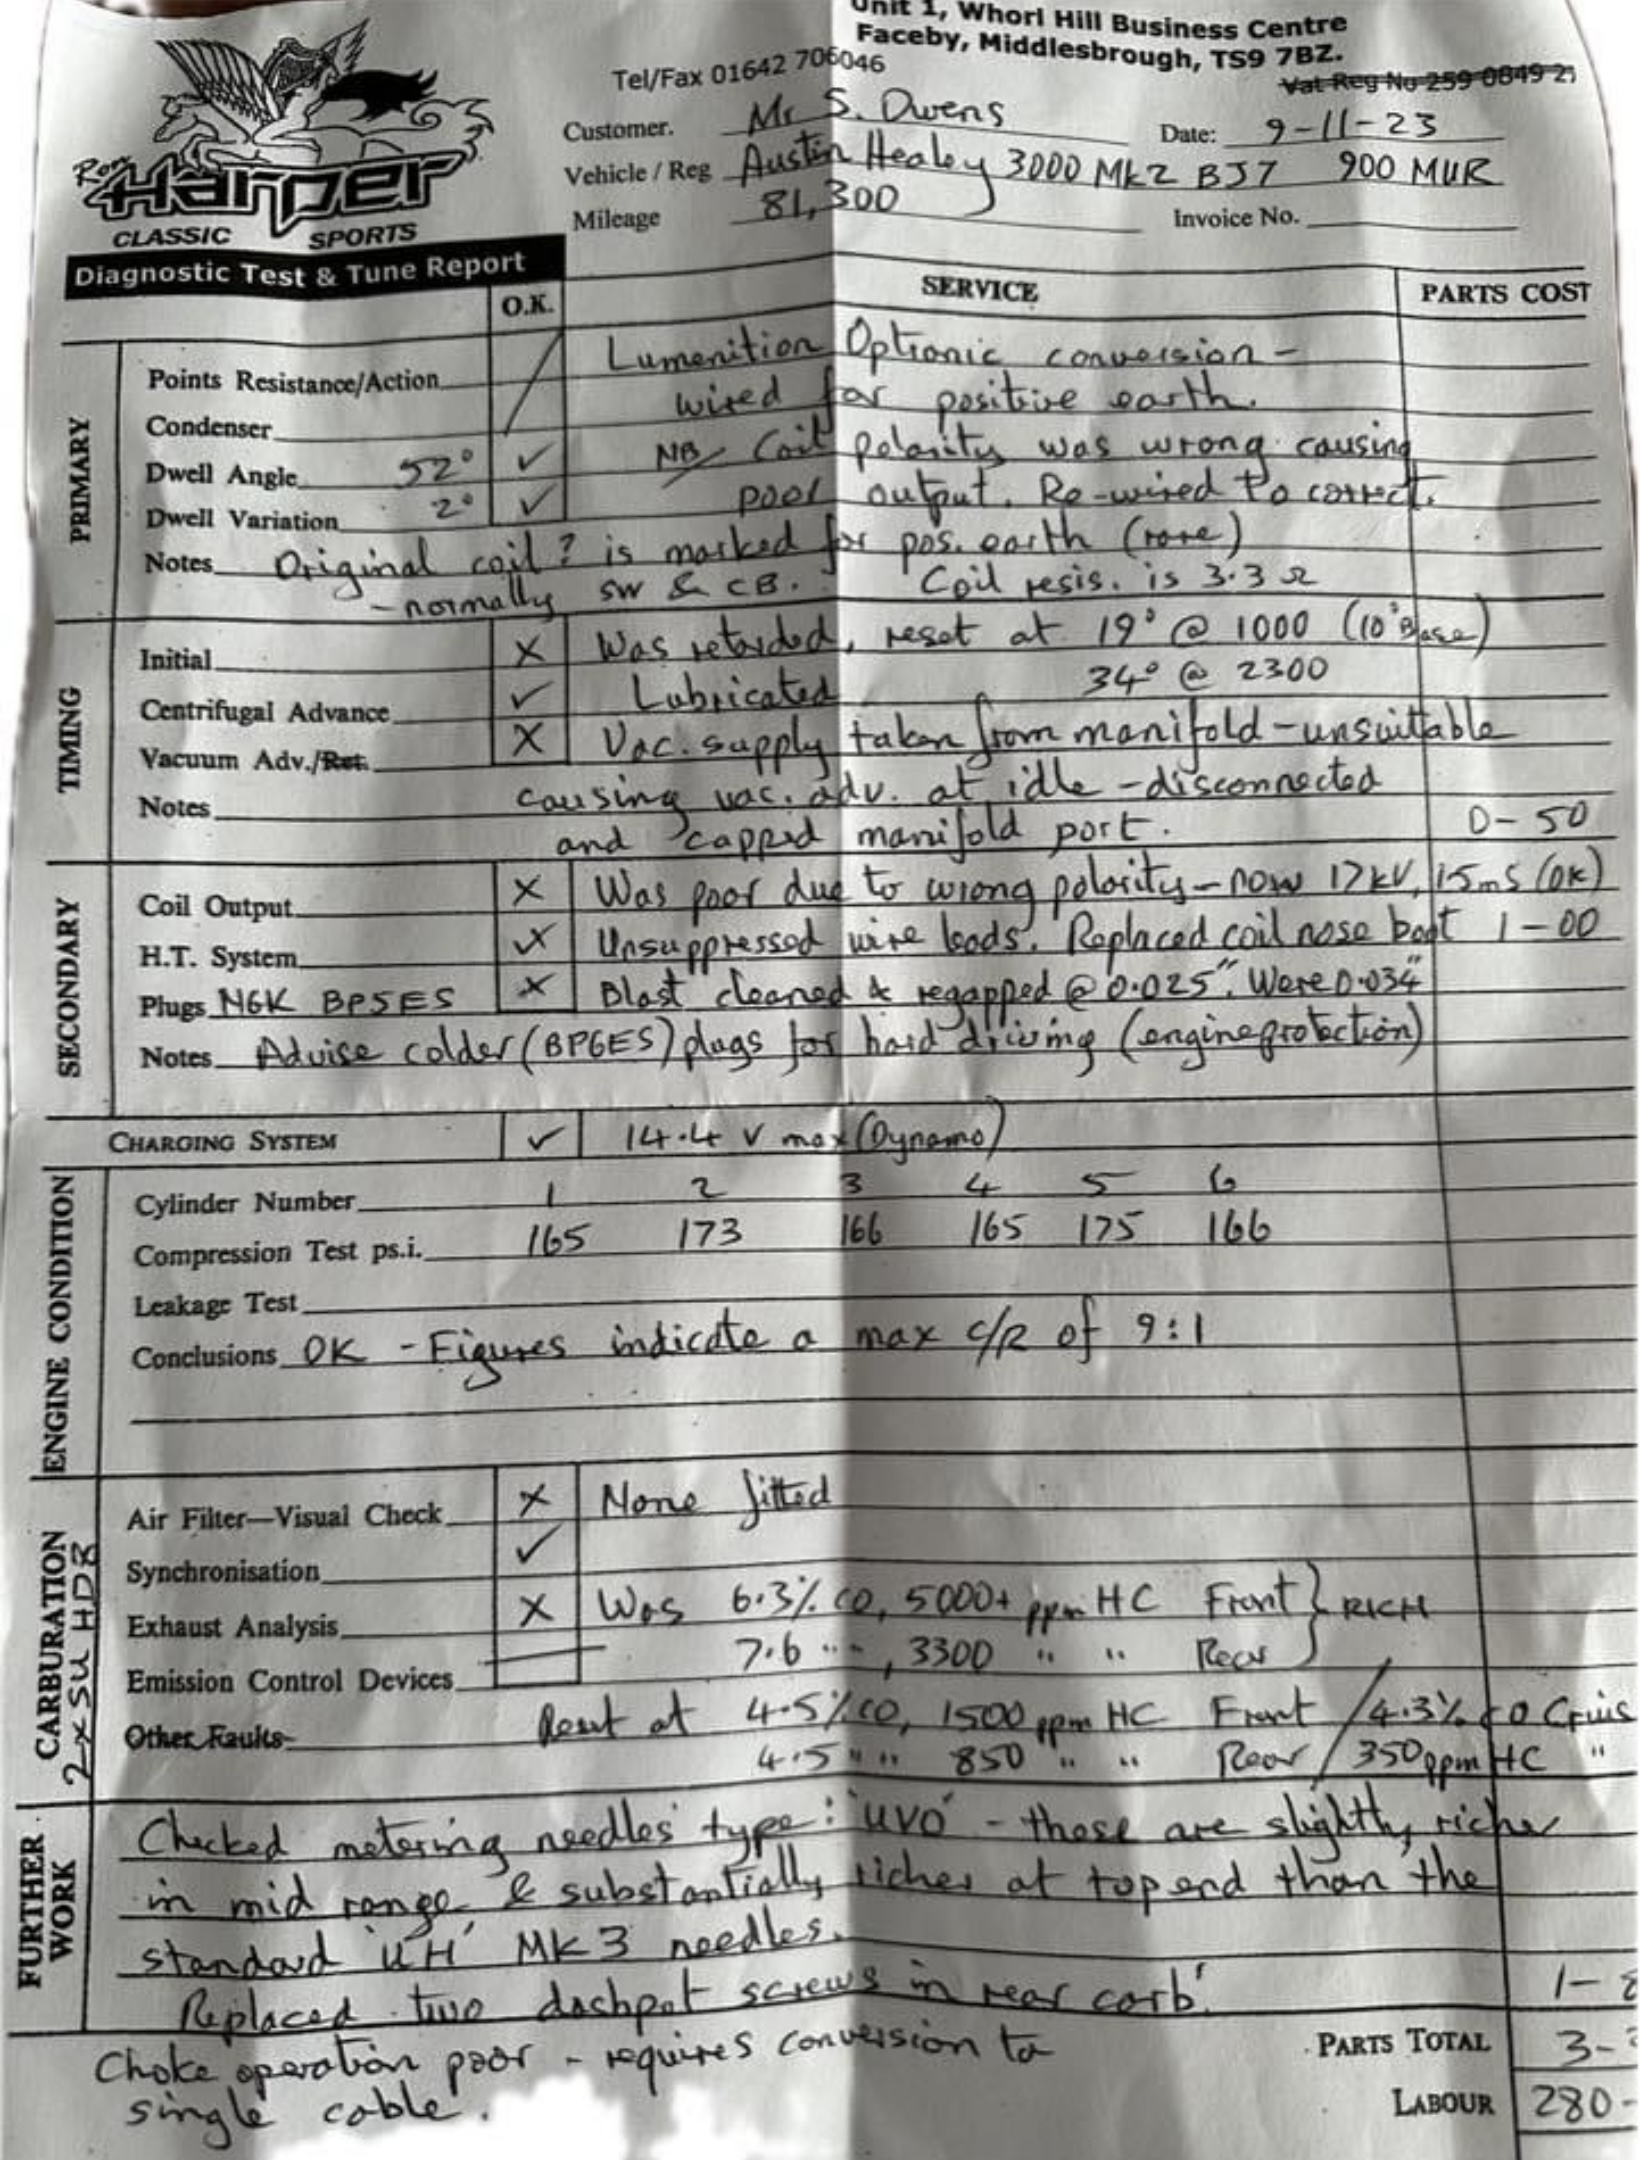 Unit 1, Whorl Hill Business Centre
Faceby, Middlesbrough, TS9 7BZ.
Tel/Fax 01642 706046
Vat Reg No 259 0849 21
Ron Harper
CLASSIC SPORTS
Diagnostic Test & Tune Report
Customer. Mr S. Owens Date: 9-11-23
Vehicle / Reg Austin Healey 3000 Mk2 BJ7 900 MUR
Mileage 81,300 Invoice No.
O.K. SERVICE PARTS COST
PRIMARY
Points Resistance/Action Lumenition Optronic conversion -
Condenser wired for positive earth.
Dwell Angle 52° ✓ NB/ Coil polarity was wrong causing
Dwell Variation 2° ✓ poor output. Re-wired to correct.
Notes Original coil? is marked for pos. earth (rare)
- normally SW & CB. Coil resis. is 3.3 Ω
TIMING
Initial X Was retarded, reset at 19° @ 1000 (10° Base)
34° @ 2300
Centrifugal Advance ✓ Lubricated
Vacuum Adv./Ret. X Vac. supply taken from manifold - unsuitable
Notes causing vac. adv. at idle - disconnected
and capped manifold port. 0-50
SECONDARY
Coil Output X Was poor due to wrong polarity - now 17kV, 1.5mS (OK)
H.T. System Unsuppressed wire leads. Replaced coil nose boot 1-00
Plugs NGK BP5ES X Blast cleaned & regapped @ 0.025". Were 0.034"
Notes Advise colder (BP6ES) plugs for hard driving (engine protection)
CHARGING SYSTEM ✓ 14.4 V max (Dynamo)
ENGINE CONDITION
Cylinder Number 1 2 3 4 5 6
Compression Test ps.i. 165 173 166 165 175 166
Leakage Test
Conclusions OK - Figures indicate a max C/R of 9:1
CARBURATION
2 x SU HD8
Air Filter—Visual Check X None fitted
Synchronisation ✓
Exhaust Analysis X Was 6.3% CO, 5000+ ppm HC Front } RICH
7.6 " ", 3300 " " Rear
Emission Control Devices
Other Faults Reset at 4.5% CO, 1500 ppm HC Front / 4.3% CO Cruis
4.5 " " 850 " " Rear / 350ppm HC "
FURTHER WORK
Checked metering needles type: 'UVO' - these are slightly richer
in mid range & substantially richer at top end than the
standard 'UH' MK3 needles.
Replaced two dashpot screws in rear carb. 1-
Choke operation poor - requires conversion to
single cable.
PARTS TOTAL 3-
LABOUR 280-